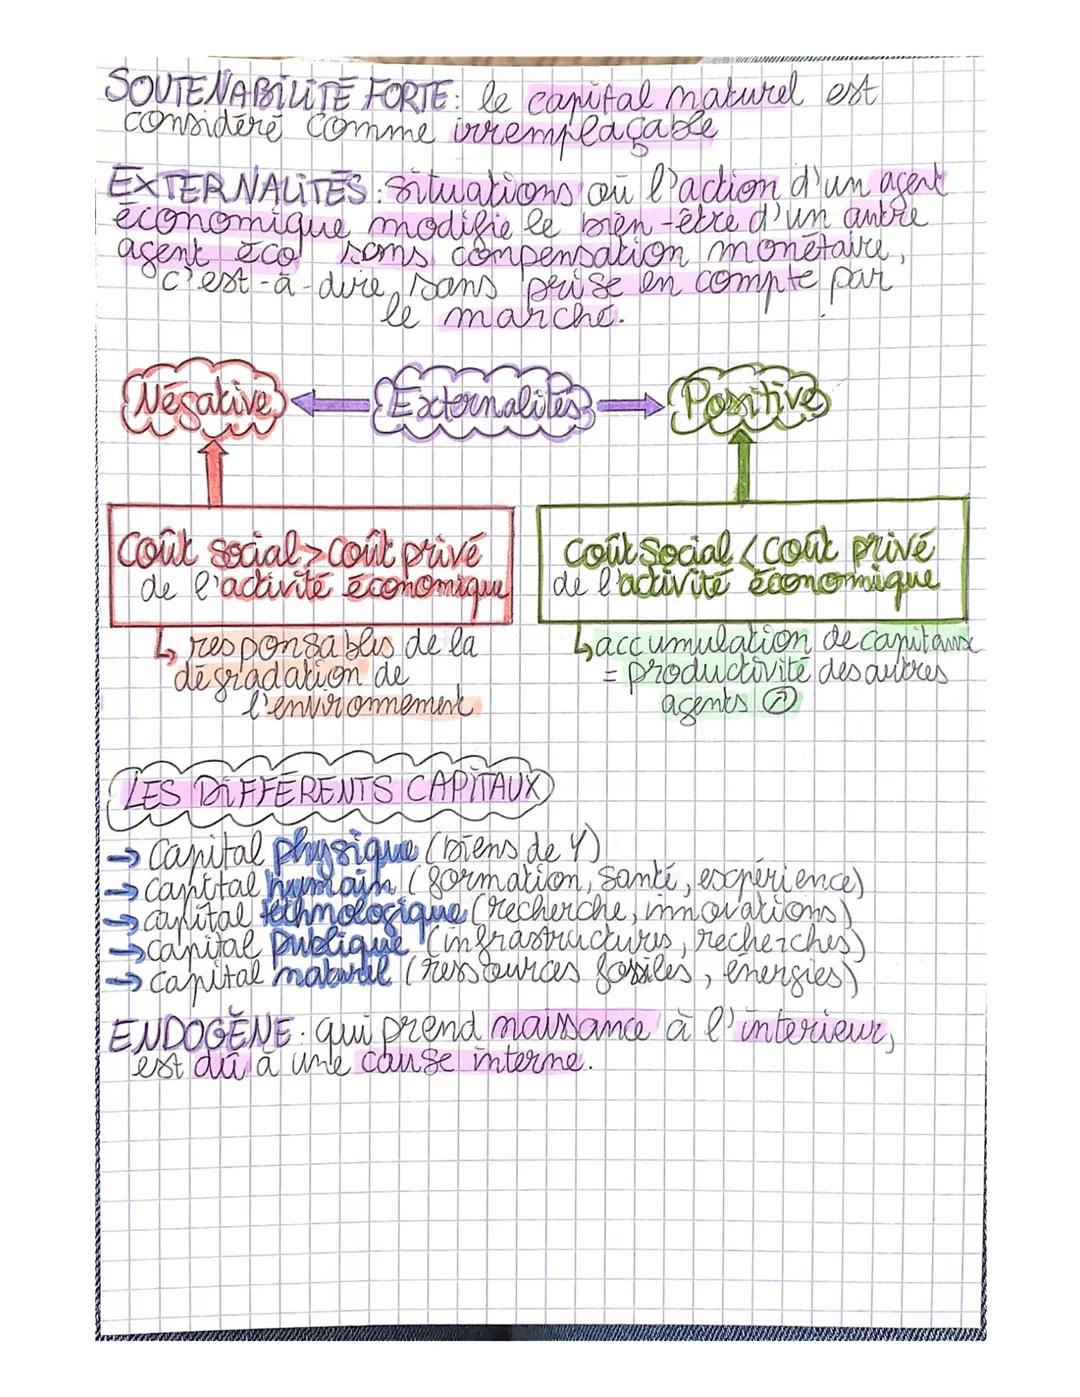 SOUTENABILITÉ FORTE : le capital naturel est
considéré comme irremplaçable
EXTERNALITÉS : situations où l'action d'un agent
économique modifie le bien-être d'un autre
agent éco sans compensation monétaire,
c'est-à-dire, sans prise en compte par
le marché.
Négative ← Externalités → Positives
Coût social > Coût privé
de l'activité économique
Coût Social < Coût privé
de l'activité économique
↳ responsables de la
dégradation de
l'environnement
↳ accumulation de capitaux
= productivité des autres
agents ↗
LES DIFFÉRENTS CAPITAUX
→ capital physique (biens de Y)
→ capital humain (formation, santé, expérience)
→ capital technologique (recherche, innovations)
→ capital publique (infrastructures, recherches)
→ capital naturel (ressources fossiles, énergies)
ENDOGÈNE : qui prend naissance à l'interieur,
est dû à une cause interne.